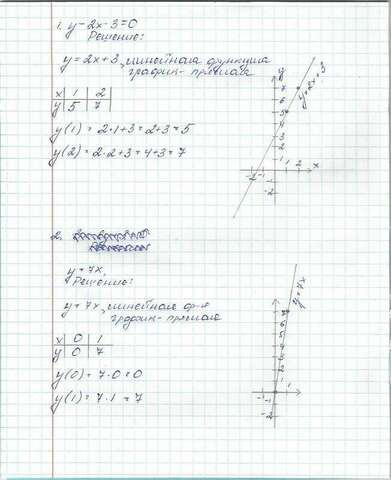 1. y - 2x - 3 = 0
Решение:
y = 2x + 3, линейная функция
график - прямая
x | 1 | 2
y | 5 | 7
y(1) = 2·1+3 = 2+3 = 5
y(2) = 2·2+3 = 4+3 = 7
y
7
6
5
4
3
2
1
-2 -1 1 2 x
-1
-2
y = 2x + 3
2.
y = 7x,
Решение:
y = 7x, линейная ф-я
график - прямая
x | 0 | 1
y | 0 | 7
y(0) = 7·0 = 0
y(1) = 7·1 = 7
y = 7x
7
6
5
4
3
2
1
-1 1
-1
-2